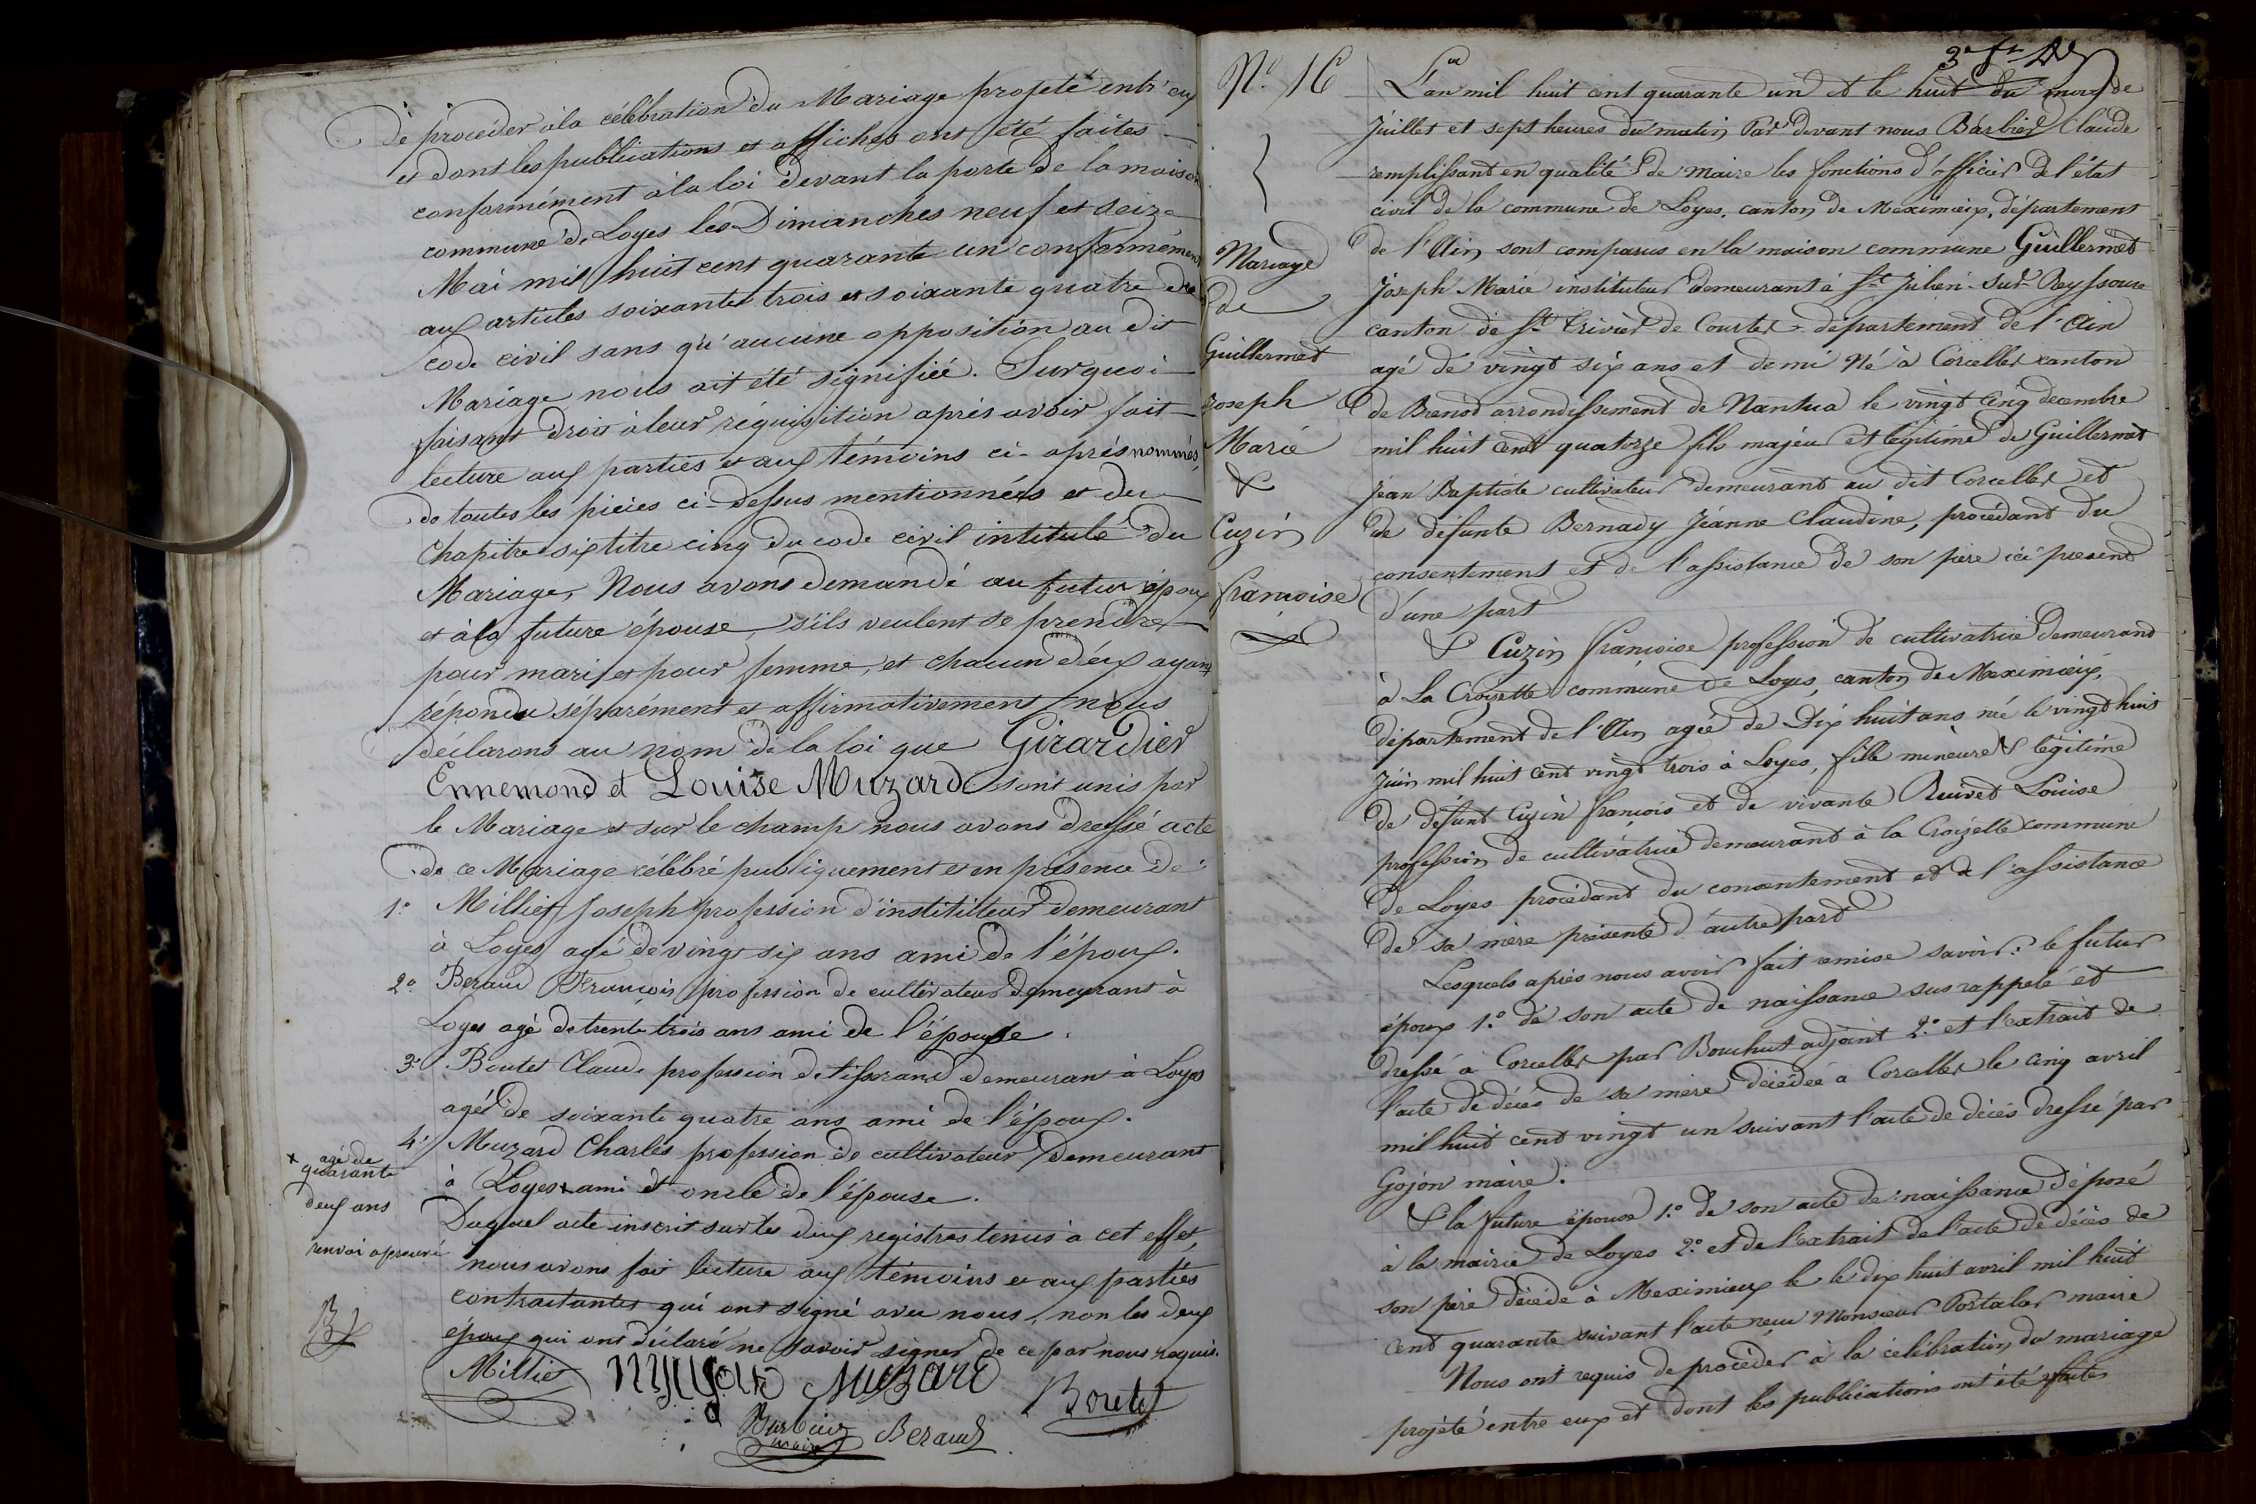 de procéder à la célébration du Mariage projeté entr'eux
et dont les publications et affiches ont été faites
conformément à la loi devant la porte de la maison
commune de Loyes les Dimanches neuf et seize
Mai mil huit cent quarante un conformément
aux articles soixante trois et soixante quatre du
code civil sans qu'aucune opposition au dit
Mariage nous ait été signifiée. Surquoi
faisant droit à leur réquisition après avoir fait
lecture aux parties et aux témoins ci-après nommés,
de toutes les pièces ci-dessus mentionnées et du
chapitre six titre cinq du code civil intitulé du
Mariage, Nous avons demandé au futur époux
et à la future épouse, s'ils veulent se prendre
pour mari et pour femme, et chacun d'eux ayant
répondu séparément et affirmativement nous
déclarons au nom de la loi que Girardier
Ennemond et Louise Muzard sont unis par
le Mariage et sur le champ nous avons dressé acte
de ce Mariage célébré publiquement et en présence de
1° Milliet Joseph profession d'instititteur demeurant
à Loyes agé de vingt six ans ami de l'époux.
2° Beraud François profession de cultivateur demeurant à
Loyes agé de trente trois ans ami de l'épouse.
3° Boutet Claude profession de tisserand demeurant à Loyes
agé de soixante quatre ans ami de l'époux.
4° Muzard Charles profession de cultivateur demeurant
à Loyes x ami et oncle de l'épouse.
x agé de
quarante
deux ans
renvoi aprouvé
Duquel acte inscrit sur les deux registres tenus à cet effet,
nous avons fait lecture aux témoins et aux parties
contractantes qui ont signé avec nous, non les deux
époux qui ont déclaré ne savoir signer de ce par nous requis.
Milliet Muzard Boutet
Barbier maire Beraud
N° 16
Mariage
de
Guillermet
Joseph
Marie
&
Cuzin
françoise
L'an mil huit cent quarante un et le huit du mois de
Juillet et sept heures du matin Par devant nous Barbier Claude
remplissant en qualité de Maire les fonctions d'officier de l'état
civil de la commune de Loyes, canton de Meximieux, département
de l'Ain sont comparus en la maison commune Guillermet
Joseph Marie instituteur demeurant à St Julien-sur-Reyssouze
canton de St Trivier de Courtes département de l'Ain
agé de vingt six ans et demi Né à Corcelles canton
de Brenod arrondissement de Nantua le vingt cinq decembre
mil huit cent quatorze fils majeur et légitime de Guillermet
Jean Baptiste cultivateur demeurant au dit Corcelles et
de défunte Bernady Jeanne Claudine, procédant du
consentement et de l'assistance de son père ici présent
d'une part
& Cuzin françoise profession de cultivatrice demeurant
à La Croizette commune de Loyes, canton de Meximieux,
département de l'Ain agée de Dix huit ans né le vingt huit
Juin mil huit cent vingt trois à Loyes, fille mineure & légitime
de défunt Cuzin françois et de vivante Ruivet Louise
profession de cultivatrice demeurant à la Croizette commune
de Loyes procédant du consentement et de l'assistance
de sa mère présente d'autre part
Lesquels après nous avoir fait remise savoir: le futur
époux 1° de son acte de naissance sus rappelé et
dressé à Corcelles par Bouchut adjoint 2° et l'extrait de
l'acte de décès de sa mère décédée à Corcelles le cinq avril
mil huit cent vingt un suivant l'acte de décès dressé par
Gojon maire.
& la future épouse 1° de son acte de naissance déposé
à la mairie de Loyes 2° et de l'extrait de l'acte de décès de
son père décédé à Meximieux le le dix huit avril mil huit
cent quarante suivant l'acte reçu Monsieur Portalar maire
Nous ont requis de procéder à la célébration du mariage
projeté entre eux et dont les publications ont été faites